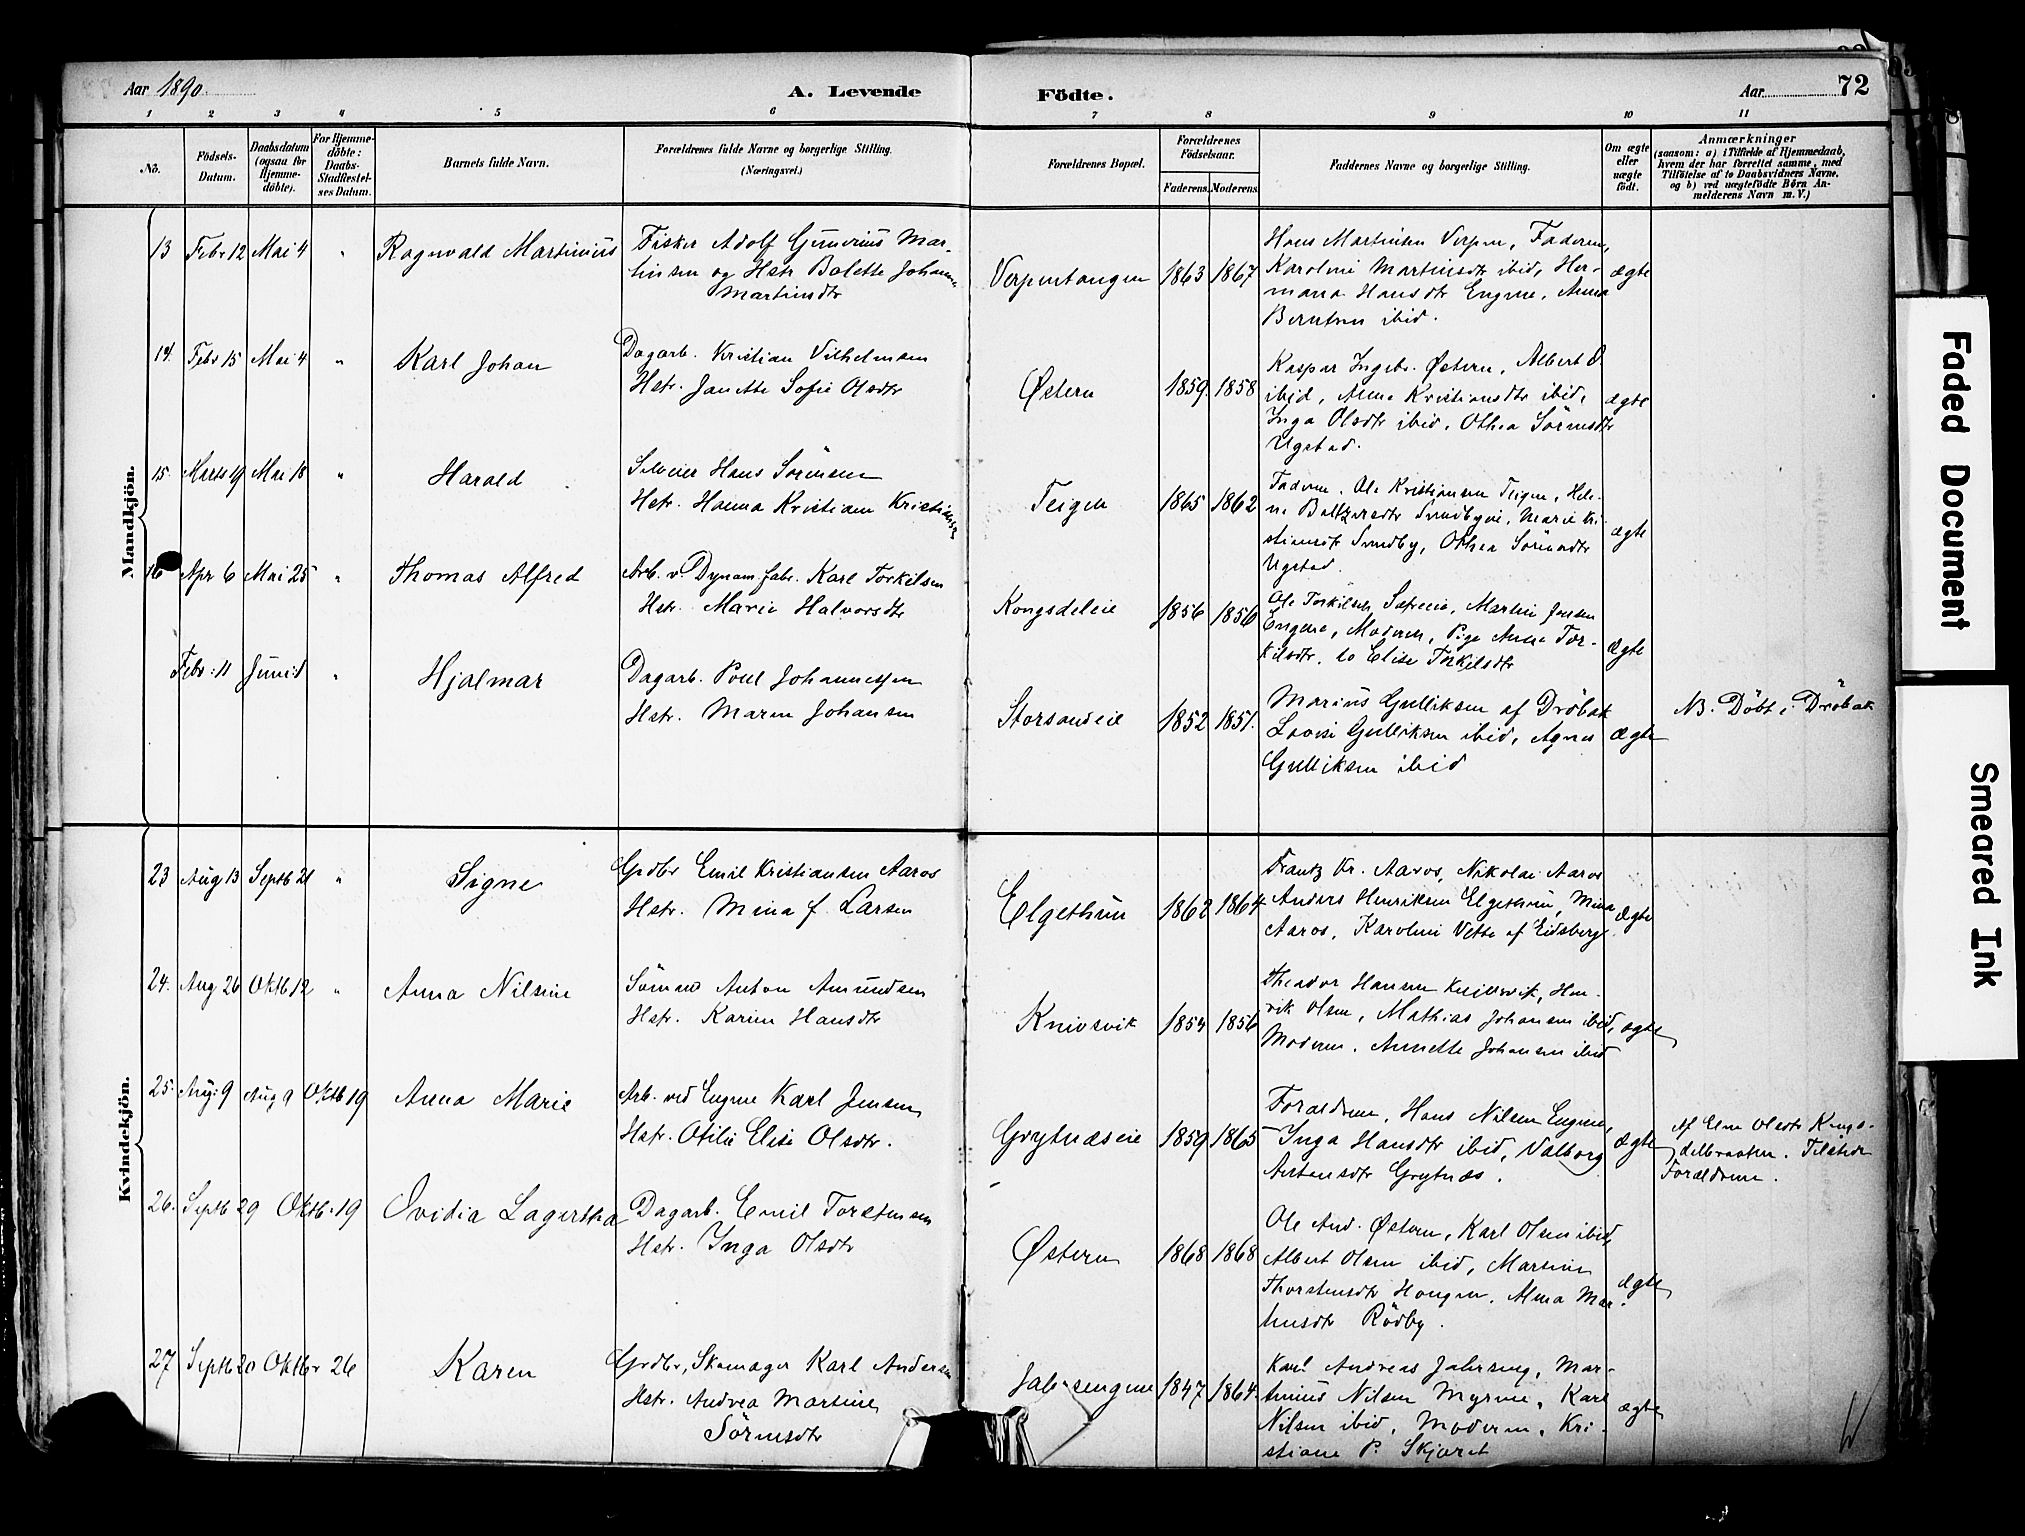 Aar 1890.
A. Levende
Födte.
Aar
72
1 2 3 4 5 6 7 8 9 10 11
No.
Födsels-
Datum.
Daabsdatum
(ogsaa for
Hjemme-
döbte).
For Hjemme-
döbte:
Daabs-
Stadfæstel-
ses Datum.
Barnets fulde Navn.
Forældrenes fulde Navne og borgerlige Stilling.
(Næringsvei.)
Forældrenes Bopæl.
Forældrenes
Födselsaar.
Faderens. Moderens.
Faddernes Navne og borgerlige Stilling.
Om ægte
eller
uægte
født.
Anmærkninger
(saasom: a) i Tilfælde af Hjemmedaab,
hvem der har forrettet samme, med
Tilföielse af to Daabsvidners Navne,
og b) ved uægtefödte Börn An-
melderens Navn m. V.)
Mandkjön.
13 Febr 12 Mai 4 " Ragnvald Martinius
Fisker Adolf Gunerius Mar-
tinsen og Hstr Bolette Johanne
Martinsdtr
Verpentangen 1863 1867
Hans Martinsen Verpen, Faderen,
Karoline Martinsdtr ibid, Her-
mana Hansdtr Engene, Anna
Berntsen ibid.
ægte
14. Febr 15 Mai 4 " Karl Johan
Dagarb. Kristian Vilhelmsen
Hstr. Janette Sofie Olsdtr
Østern 1859. 1858
Kaspar Ingebr. Østern, Albert O.
ibid, Anna Kristiansdtr ibid,
Inga Olsdtr ibid, Othea Sörensdtr
Ugstad.
ægte
15. Marts 19 Mai 18 " Harald
Selveier Hans Sörensen
Hstr. Hanna Kristiane Kristiansen
Teigen 1865 1862
Faderen, Ole Kristiansen Teigen, Hele-
ne Baltzersdtr Sundbyeie, Marie Kri-
stiansdtr Sundby, Othea Sörensdtr
Ugstad.
ægte
16 Apr 6 Mai 25 " Thomas Alfred
Arb. v. Dynam. fabr. Karl Torkilsen
Hstr. Marie Halvorsdtr
Kongsdeleie 1856 1856
Ole Torkilsen Sætreeie, Martin Jensen
Engene, Moderen, Pige Anna Tor-
kilsdtr. to Elise Torkilsdtr
ægte
Febr: 11 Juni 1 " Hjalmar
Dagarb. Poul Johannessen
Hstr. Maren Johansen
Storsandeie 1852 1851.
Marius Gulliksen af Dröbak
Lovise Gulliksen ibid, Agnes
Gulliksen ibid
ægte
NB. Döbt i Dröbak
Kvindekjön.
23 Aug 13 Septb 21 " Signe
Grdbr Emil Kristiansen Aaros
Hstr. Mina f. Larsen
Elgethun 1862 1864
Frantz Kr. Aaros, Nikolai Aaros
Anders Henriksen Elgethun, Mina
Aaros, Karoline Vette af Eidsberg
ægte
24. Aug 26 Oktb 12 " Anna Nilsine
Sömand Anton Amundsen
Hstr. Karine Hansdtr
Knivsvik 1854 1856
Theodor Hansen Knivsvik, Hen-
rik Olsen, Mathias Johansen ibid,
Moderen, Annette Johansen ibid
ægte
25. Aug: 9 Aug 9 Oktb 19 Anna Marie
Arb. ved Engene Karl Jensen
Hstr. Otilie Elise Olsdtr.
Grytnæseie 1859 1865
Forældrene, Hans Nilsen Engene,
Inga Hansdtr ibid, Valborg
Antonsdtr Grytnæs.
ægte
Af Elen Olsdtr Kongs-
delbraaten. Tilstede
Forældrene.
26. Septb 29 Oktb. 19 Ovidia Lagertha
Dagarb. Emil Torstensen
Hstr. Inga Olsdtr
Østern 1868 1868
Ole And. Østern, Karl Olsen ibid,
Albert Olsen ibid, Martine
Thorstensdtr Haugen, Alma Mar-
tinsdtr Rödby.
ægte
27 Septb 20 Oktbr 26 Karen
Grdbr, Skomager Karl Andersen
Hstr. Andrea Martine
Sörensdtr
1847 1864.
Karl Andreas Mar-
tinius Nilsen Myrene, Karl
Nilsen ibid, Moderen, Kri-
stiane P. Skjæret
ægte
Faded Document
Smeared Ink